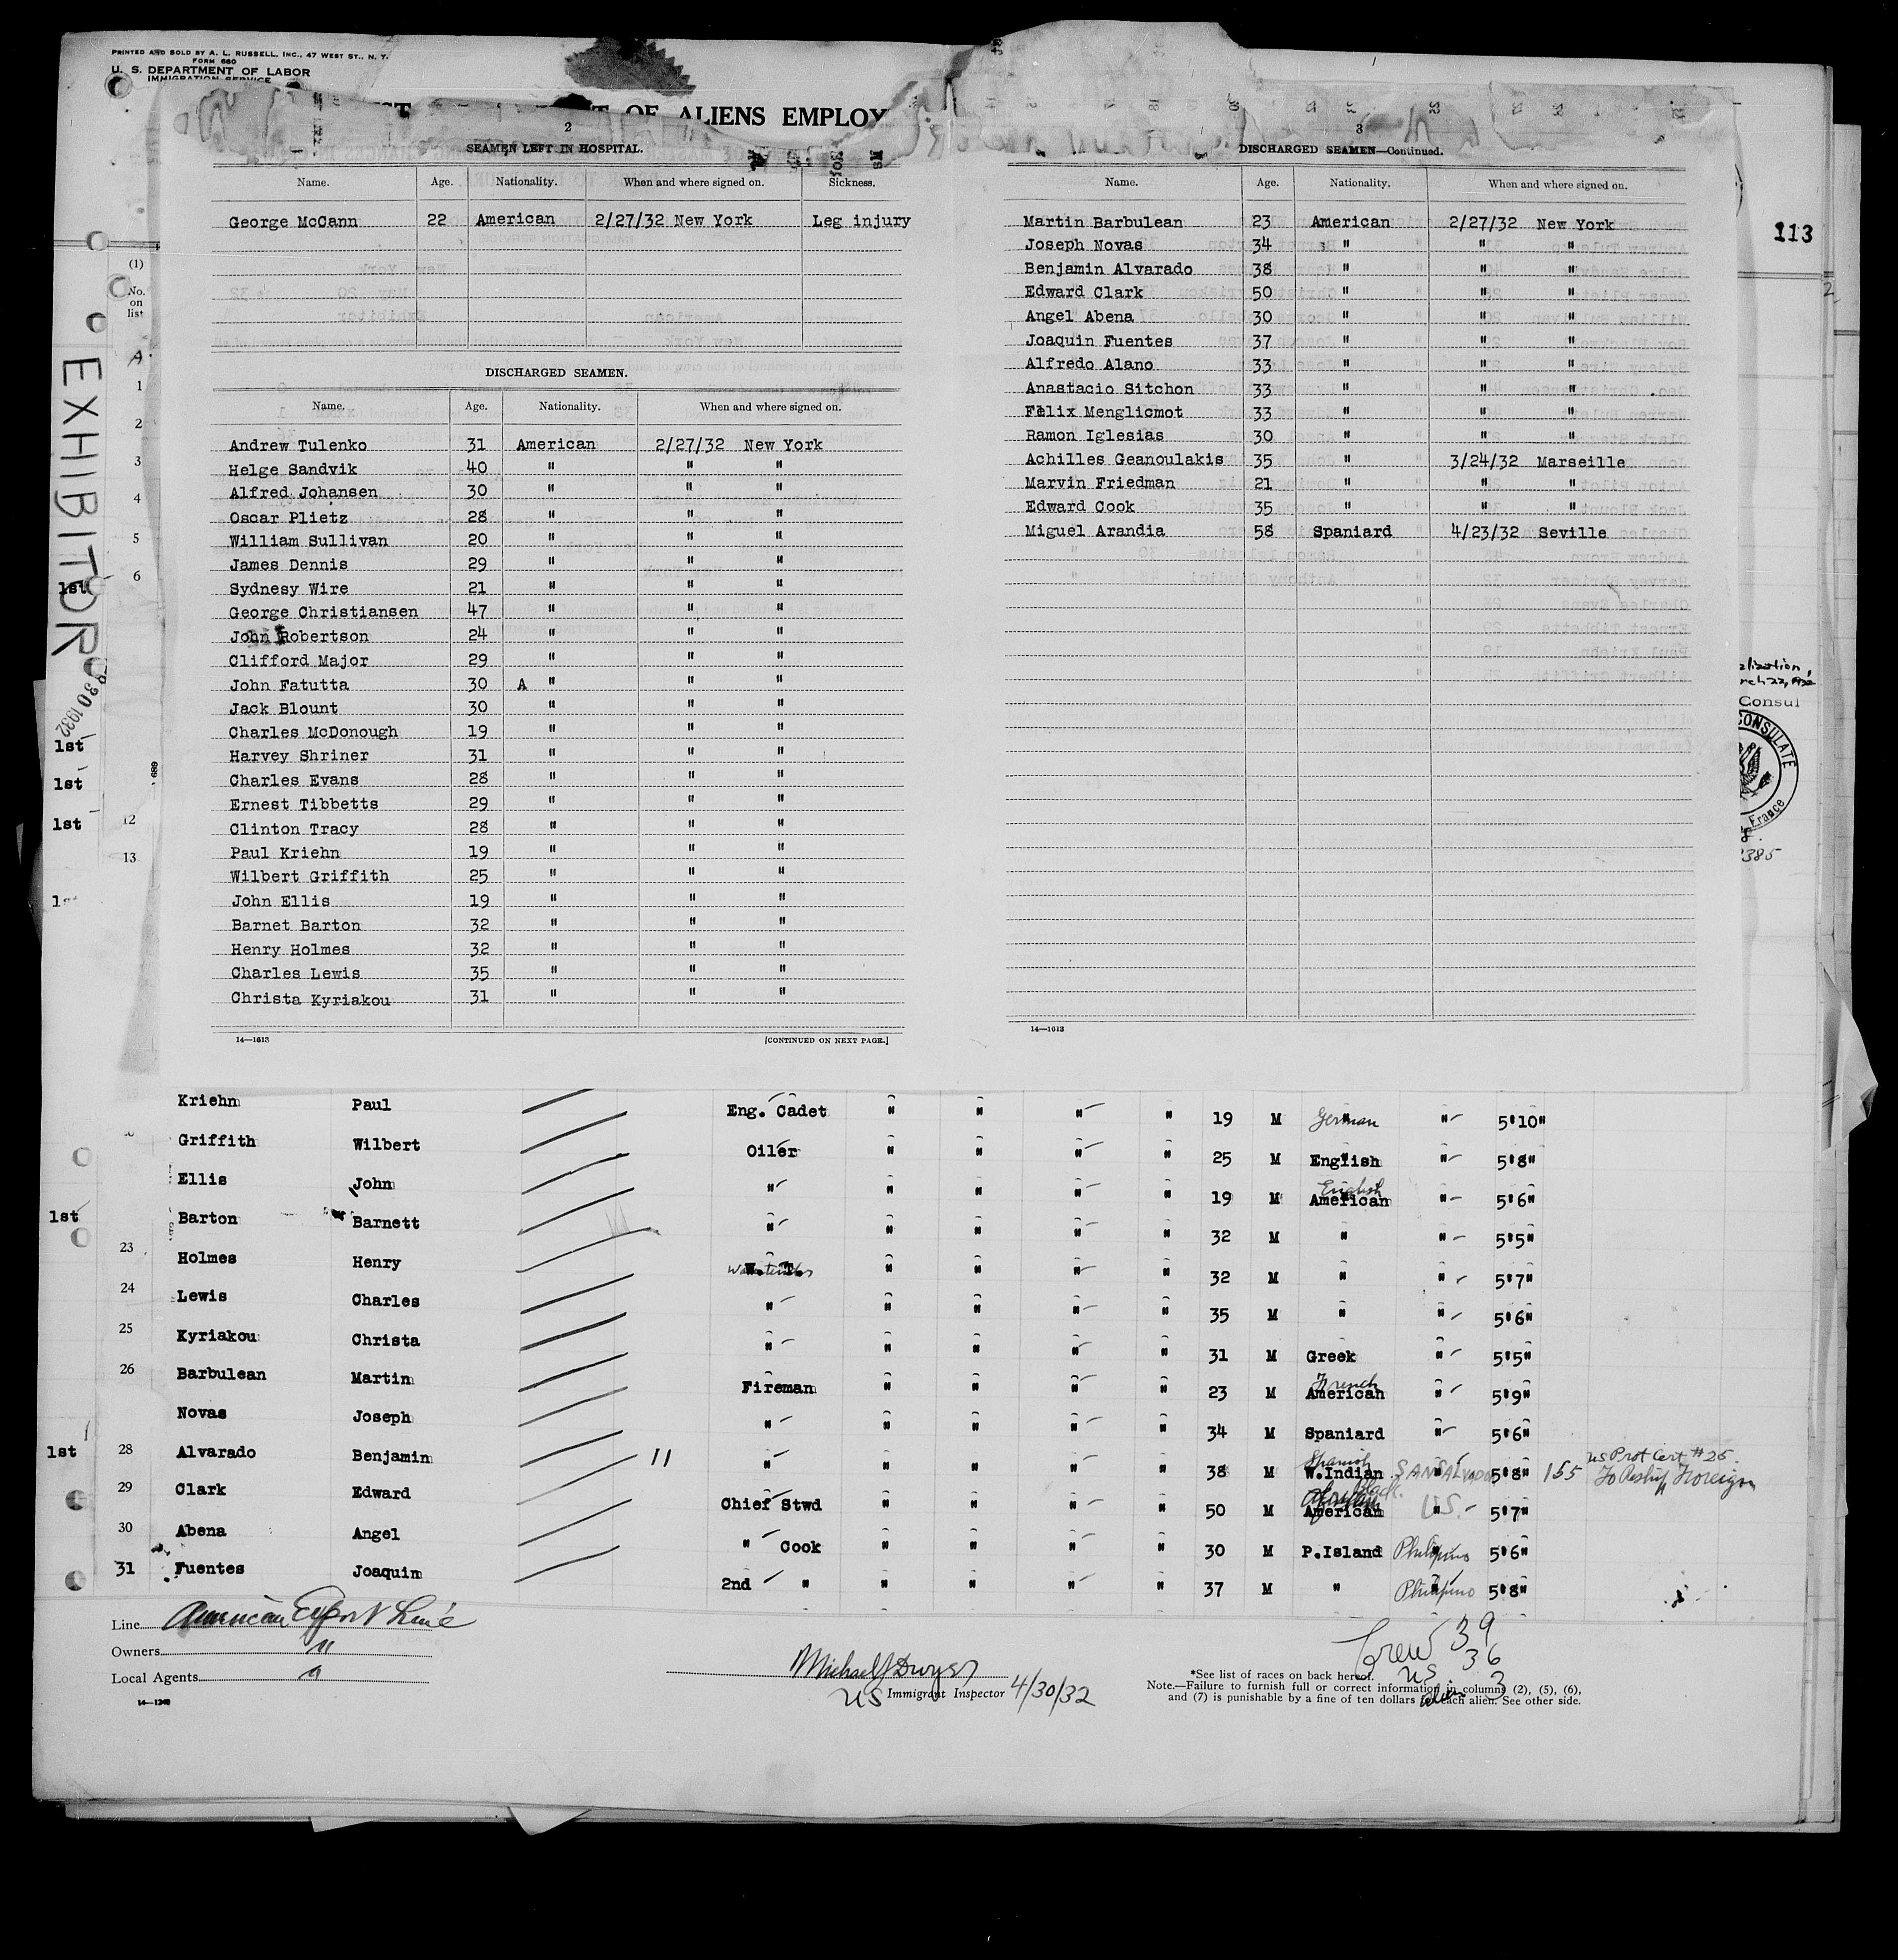 PRINTED AND SOLD BY A. L. RUSSELL, INC., 47 WEST ST., N. Y.
FORM 680
U. S. DEPARTMENT OF LABOR
IMMIGRATION SERVICE
OF ALIENS EMPLOY
113
(1)
No. on list
EXHIBITOR
2
SEAMEN LEFT IN HOSPITAL.
Name. Age. Nationality. When and where signed on. Sickness.
George McCann 22 American 2/27/32 New York Leg injury
DISCHARGED SEAMEN.
Name. Age. Nationality. When and where signed on.
Andrew Tulenko 31 American 2/27/32 New York
Helge Sandvik 40 " " "
Alfred Johansen 30 " " "
Oscar Plietz 28 " " "
William Sullivan 20 " " "
James Dennis 29 " " "
Sydnesy Wire 21 " " "
George Christiansen 47 " " "
John Robertson 24 " " "
Clifford Major 29 " " "
John Fatutta 30 A " " "
Jack Blount 30 " " "
Charles McDonough 19 " " "
Harvey Shriner 31 " " "
Charles Evans 28 " " "
Ernest Tibbetts 29 " " "
Clinton Tracy 28 " " "
Paul Kriehn 19 " " "
Wilbert Griffith 25 " " "
John Ellis 19 " " "
Barnet Barton 32 " " "
Henry Holmes 32 " " "
Charles Lewis 35 " " "
Christa Kyriakou 31 " " "
14—1613 [CONTINUED ON NEXT PAGE.]
3
DISCHARGED SEAMEN—Continued.
Name. Age. Nationality. When and where signed on.
Martin Barbulean 23 American 2/27/32 New York
Joseph Novas 34 " " "
Benjamin Alvarado 38 " " "
Edward Clark 50 " " "
Angel Abena 30 " " "
Joaquin Fuentes 37 " " "
Alfredo Alano 33 " " "
Anastacio Sitchon 33 " " "
Felix Menglicmot 33 " " "
Ramon Iglesias 30 " " "
Achilles Geanoulakis 35 " 3/24/32 Marseille
Marvin Friedman 21 " " "
Edward Cook 35 " " "
Miguel Arandia 58 Spaniard 4/23/32 Seville
14—1613
1
2
3
4
5
6
12
13
1st
1st
1st
1st
30 1932
Consul
CONSULATE
France
385
Kriehn Paul Eng. Cadet " " " " 19 M German " 5'10"
Griffith Wilbert Oiler " " " " 25 M English " 5'8"
Ellis John " " " " " 19 M English American " 5'6"
1st Barton Barnett " " " " " 32 M " " 5'5"
23 Holmes Henry W. T. Watertender " " " " 32 M " " 5'7"
24 Lewis Charles " " " " " 35 M " " 5'6"
25 Kyriakou Christa " " " " " 31 M Greek " 5'5"
26 Barbulean Martin Fireman " " " " 23 M French American " 5'9"
Novas Joseph " " " " " 34 M Spaniard " 5'6"
1st 28 Alvarado Benjamin 11 " " " " " 38 M Spanish W.Indian SANSALVADOR " 5'8" 155 US Prot Cert #25. To Reship Foreign
29 Clark Edward Chief Stwd " " " " 50 M Black American U.S. " 5'7"
30 Abena Angel " Cook " " " " 30 M P.Island Philipino 5'6"
31 Fuentes Joaquin 2nd " " " " " 37 M " Philipino 5'8"
Line American Export Line
Owners "
Local Agents "
14—1240
Michael J Dwyer
US Immigrant Inspector 4/30/32
Crew 39
US 36
alien 3
*See list of races on back hereof.
Note.—Failure to furnish full or correct information in columns (2), (5), (6),
and (7) is punishable by a fine of ten dollars for each alien. See other side.